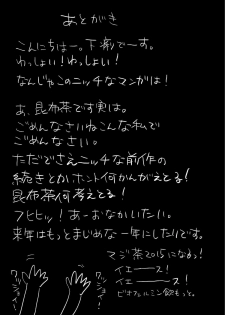 あとがき
こんにちはー。下剤でーす。
わっしょい!わっしょい!
なんじゃこのニッチなマンガは!
あ、昆布茶です実は。
ごめんなさいねこんな私で
ごめんなさい。
ただでさえニッチな前作の
続きとかホント何かんがえてる!
昆布茶何考えてる!
フヒヒッ!あーおなかいたい。
来年はもっとまじめな一年にしたいです。
マジ茶2015になるっ!
イエーース!
イエーース!
ビオフェルミン飲もっと。
ワッショイ!
ワッショイ!